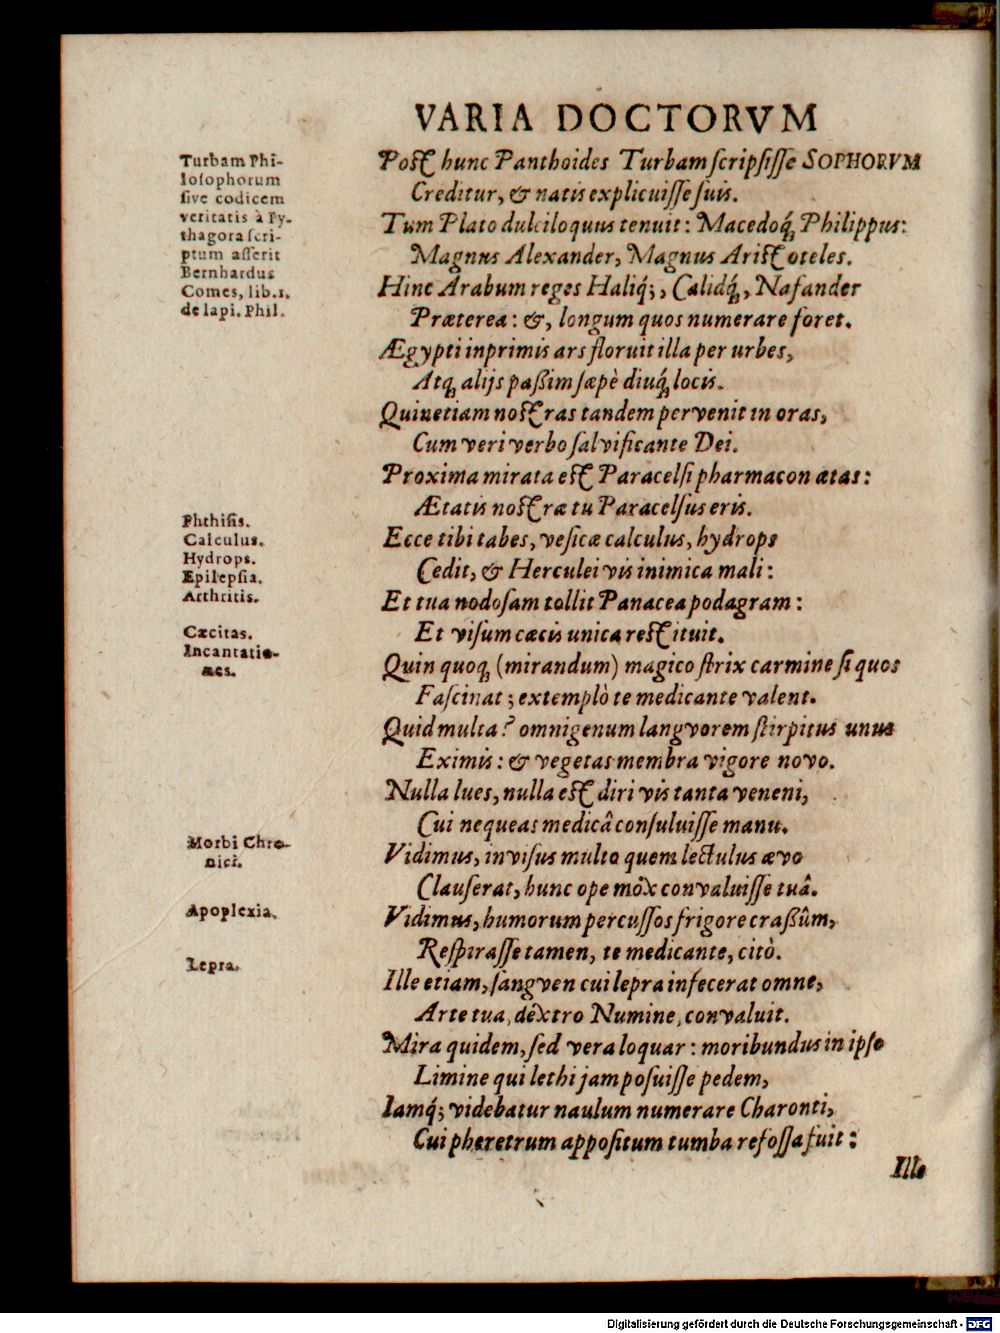 VARIA DOCTORVM
Turbam Phi-
losophorum
sive codicem
veritatis à Py-
thagora scri-
ptum asserit
Bernhardus
Comes, lib.1.
de lapi. Phil.
Post hunc Panthoides Turbam scripsisse SOPHORVM
Creditur, & natis explicuisse suis.
Tum Plato dulciloquus tenuit: Macedoq́; Philippus:
Magnus Alexander, Magnus Aristoteles.
Hinc Arabum reges Haliq́;, Calidq́;, Nafander
Præterea: &, longum quos numerare foret.
Ægypti inprimis ars floruit illa per urbes,
Atq; alijs paßim sæpè diuq́; locis.
Quinetiam nostras tandem pervenit in oras,
Cum veri verbo salvificante Dei.
Proxima mirata est Paracelsi pharmacon ætas:
Ætatis nostræ tu Paracelsus eris.
Phthisis.
Calculus.
Hydrops.
Epilepsia.
Arthritis.
Cæcitas.
Incantatio-
nes.
Ecce tibi tabes, vesicæ calculus, hydrops
Cedit, & Herculei vis inimica mali:
Et tua nodosam tollit Panacea podagram:
Et visum cæcis unica restituit.
Quin quoq; (mirandum) magico strix carmine si quos
Fascinat; extemplò te medicante valent.
Quid multa? omnigenum langvorem stirpitus unus
Eximis: & vegetas membra vigore novo.
Nulla lues, nulla est diri vis tanta veneni,
Cui nequeas medicâ consuluisse manu.
Morbi Chro-
nici.
Vidimus, invisus multo quem lectulus ævo
Clauserat, hunc ope mox convaluisse tuâ.
Apoplexia.
Vidimus, humorum percussos frigore craßûm,
Respirasse tamen, te medicante, citò.
Lepra.
Ille etiam, sangven cui lepra infecerat omne,
Arte tua, dextro Numine, convaluit.
Mira quidem, sed vera loquar: moribundus in ipso
Limine qui lethi jam posuisse pedem,
Iamq́; videbatur naulum numerare Charonti,
Cui pheretrum appositum tumba refossa fuit:
Ille
Digitalisierung gefördert durch die Deutsche Forschungsgemeinschaft - DFG